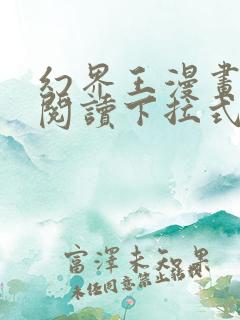 幻界王漫畫
閱讀下拉式
富澤未知果
未任同意禁止转载